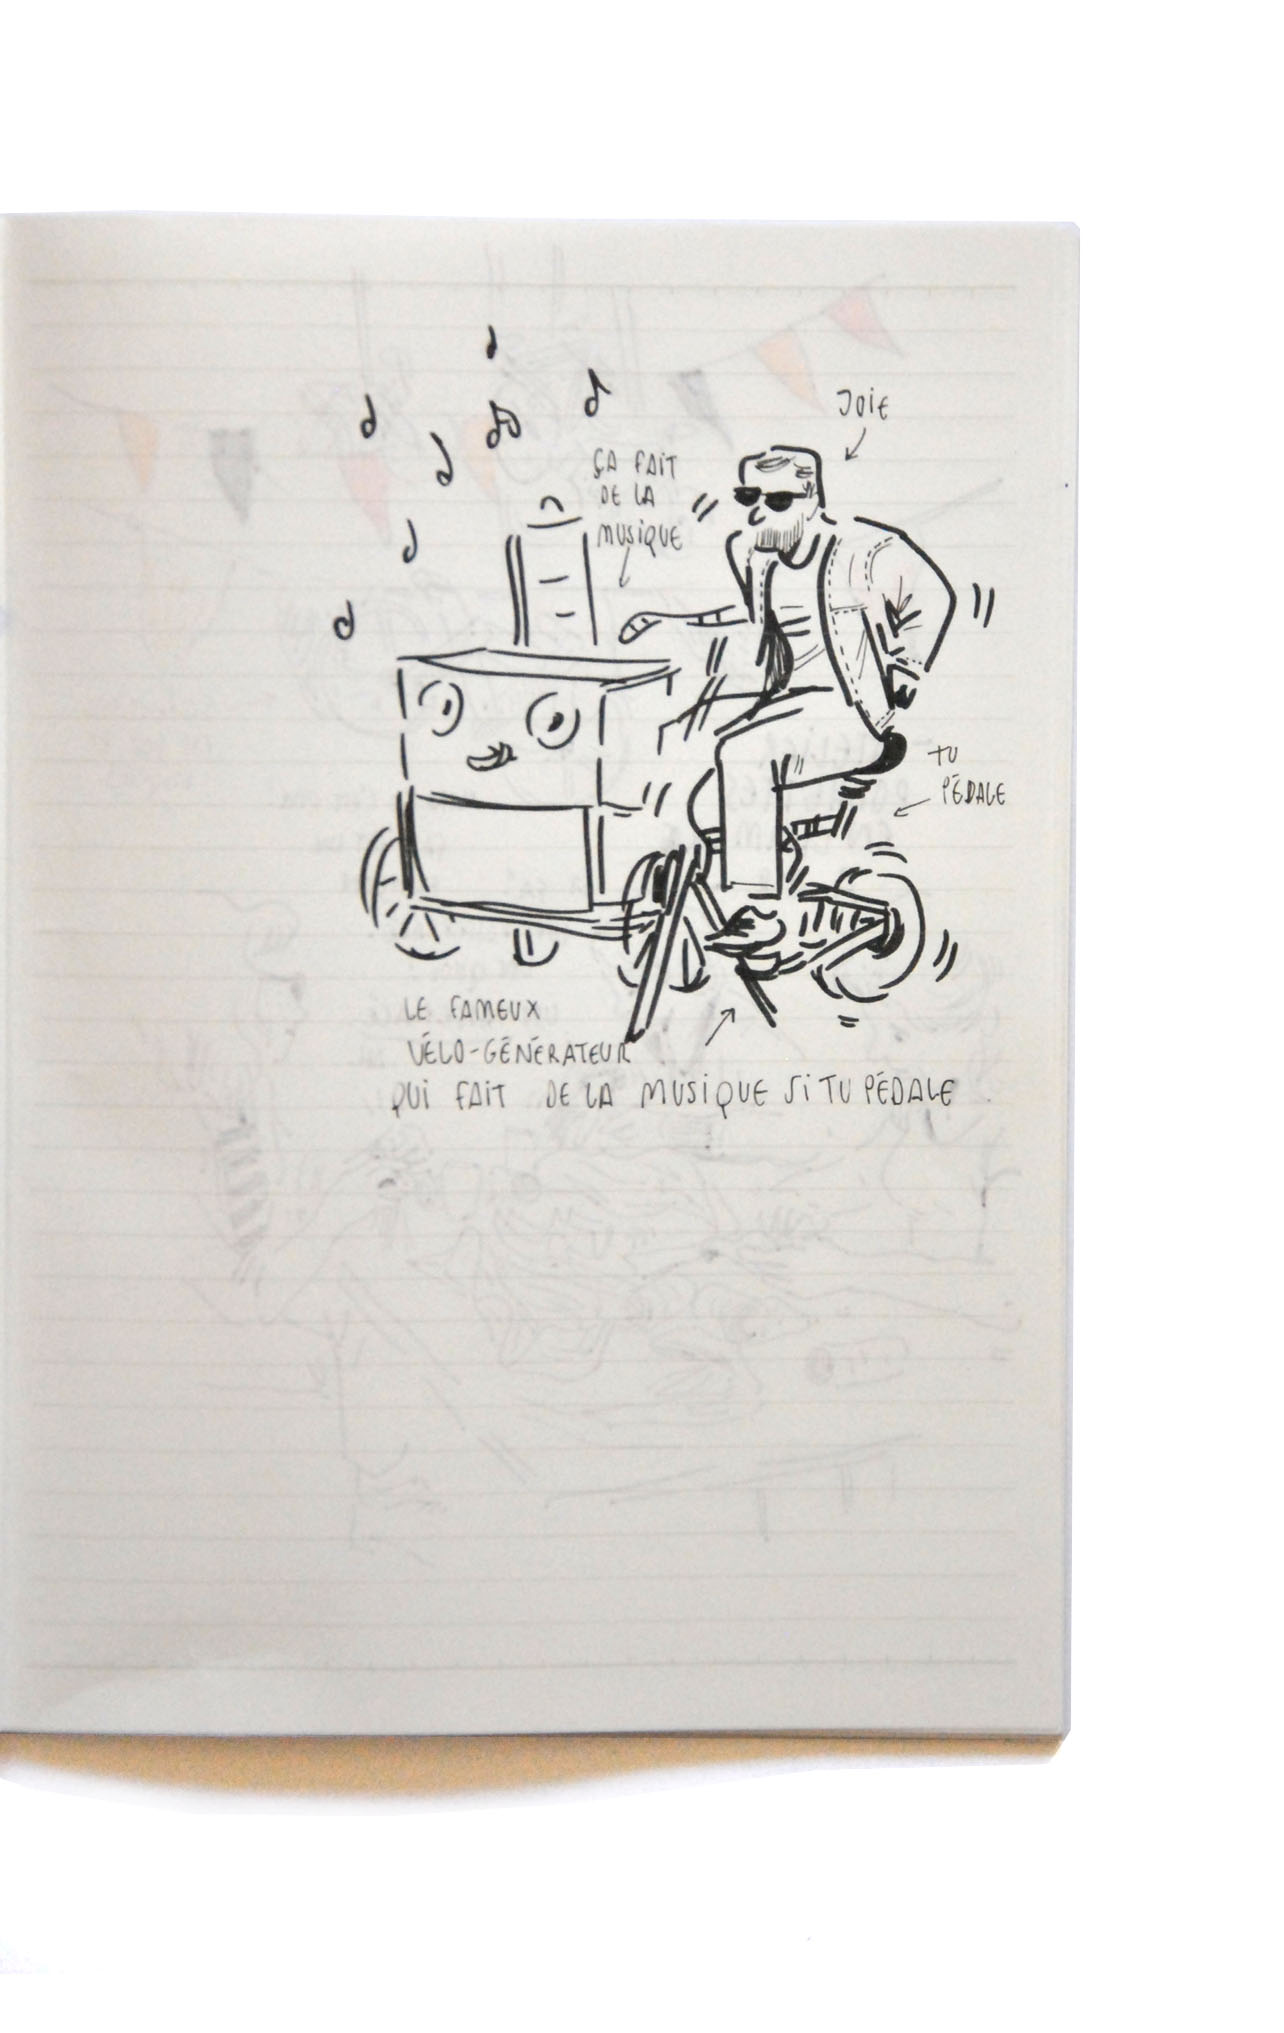 JOIE
ÇA FAIT
DE LA
MUSIQUE
TU
PÉDALE
LE FAMEUX
VÉLO-GÉNÉRATEUR
QUI FAIT DE LA MUSIQUE SI TU PÉDALE